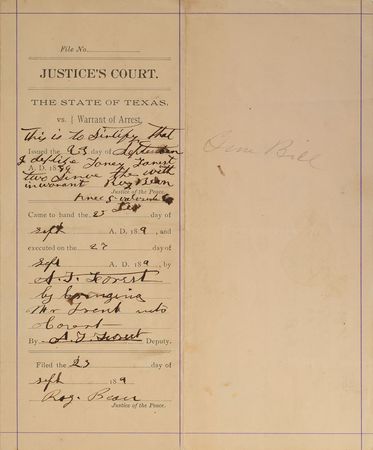 File No.
JUSTICE'S COURT.
THE STATE OF TEXAS,
vs. { Warrant of Arrest.
this is to Sirtify that
Issued the 23 day of
I deptise Forest
A. D. 1889
two Sirve the with
in warant Roy Bean
Justice of the Peace.
Came to hand the 23 day of
Sept A. D. 188 9, and
executed on the 27 day of
Sept A. D. 188 9, by
A. F. Forest
by bringing
Mr Trent into
Corest
By A. F. Forest Deputy.
Filed the 23 day of
Sept 188 9
Roy. Bean
Justice of the Peace.
Bill